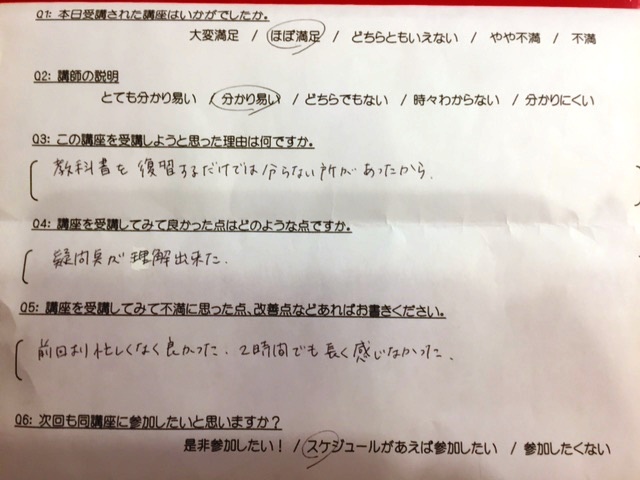 Q1: 本日受講された講座はいかがでしたか。
大変満足 / ほぼ満足 / どちらともいえない / やや不満 / 不満
Q2: 講師の説明
とても分かり易い / 分かり易い / どちらでもない / 時々わからない / 分かりにくい
Q3: この講座を受講しようと思った理由は何ですか。
教科書を復習するだけでは分らない所があったから.
Q4: 講座を受講してみて良かった点はどのような点ですか。
疑問点が理解出来た.
Q5: 講座を受講してみて不満に思った点、改善点などあればお書きください。
前回より忙しくなく良かった. 2時間でも長く感じなかった.
Q6: 次回も同講座に参加したいと思いますか?
是非参加したい! / スケジュールがあえば参加したい / 参加したくない